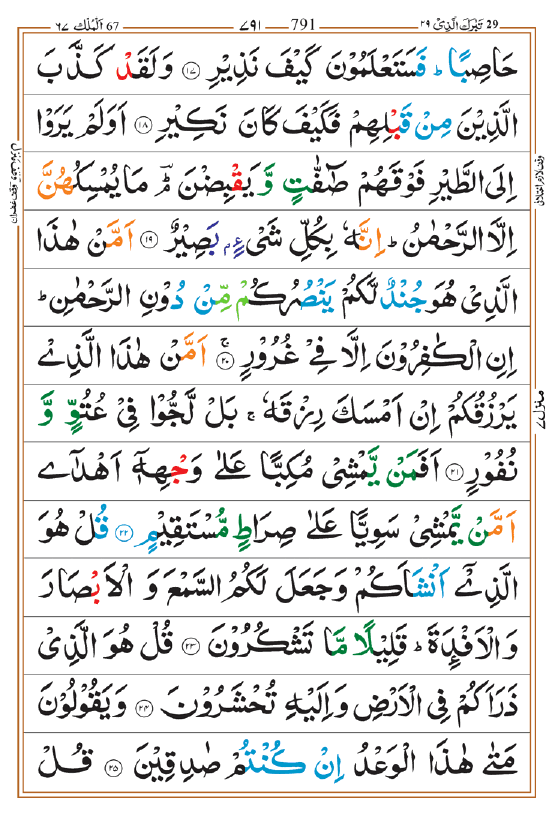 29 تَبٰرَكَ الَّذِیْ ۲۹ 791 ۷۹۱ 67 اَلْمُلْك ۶۷
حَاصِبًا ؕ فَسَتَعْلَمُوْنَ كَیْفَ نَذِیْرِ ۝۱۷ وَ لَقَدْ كَذَّبَ
الَّذِیْنَ مِنْ قَبْلِهِمْ فَكَیْفَ كَانَ نَكِیْرِ ۝۱۸ اَوَ لَمْ یَرَوْا
اِلَی الطَّیْرِ فَوْقَهُمْ صٰٓفّٰتٍ وَّ یَقْبِضْنَ ؔۘؕ مَا یُمْسِكُهُنَّ
اِلَّا الرَّحْمٰنُ ؕ اِنَّهٗ بِكُلِّ شَیْءٍۭ بَصِیْرٌ ۝۱۹ اَمَّنْ هٰذَا
الَّذِیْ هُوَ جُنْدٌ لَّكُمْ یَنْصُرُكُمْ مِّنْ دُوْنِ الرَّحْمٰنِ ؕ
اِنِ الْكٰفِرُوْنَ اِلَّا فِیْ غُرُوْرٍ ۝۲۰ۚ اَمَّنْ هٰذَا الَّذِیْ
یَرْزُقُكُمْ اِنْ اَمْسَكَ رِزْقَهٗ ۚ بَلْ لَّجُّوْا فِیْ عُتُوٍّ وَّ
نُفُوْرٍ ۝۲۱ اَفَمَنْ یَّمْشِیْ مُكِبًّا عَلٰی وَجْهِهٖۤ اَهْدٰۤی
اَمَّنْ یَّمْشِیْ سَوِیًّا عَلٰی صِرَاطٍ مُّسْتَقِیْمٍ ۝۲۲ قُلْ هُوَ
الَّذِیْۤ اَنْشَاَكُمْ وَ جَعَلَ لَكُمُ السَّمْعَ وَ الْاَبْصَارَ
وَ الْاَفْـِٕدَةَ ؕ قَلِیْلًا مَّا تَشْكُرُوْنَ ۝۲۳ قُلْ هُوَ الَّذِیْ
ذَرَاَكُمْ فِی الْاَرْضِ وَ اِلَیْهِ تُحْشَرُوْنَ ۝۲۴ وَ یَقُوْلُوْنَ
مَتٰی هٰذَا الْوَعْدُ اِنْ كُنْتُمْ صٰدِقِیْنَ ۝۲۵ قُلْ
منزل ۷